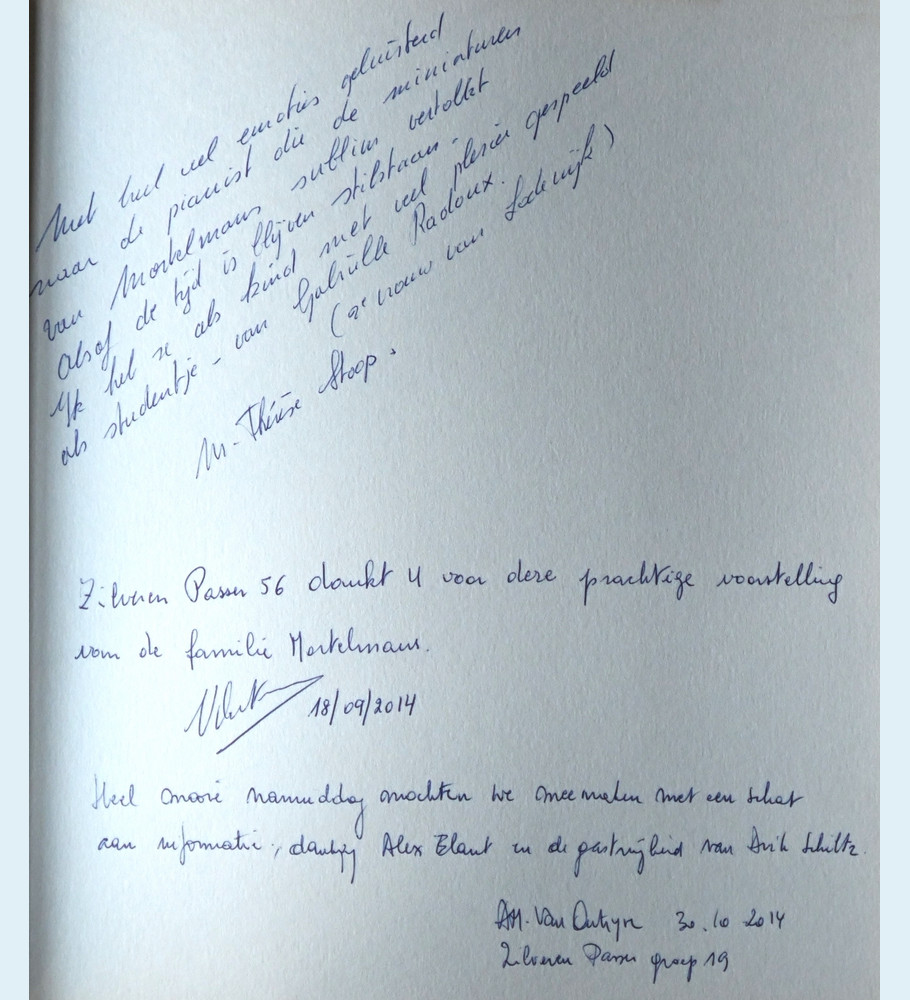 Met heel veel emoties geluisterd
naar de pianist die de miniaturen
van Mortelmans subliem vertolkt
alsof de tijd is blijven stilstaan.
Ik heb ze als kind met veel plezier gespeeld
als studentje - van Gabriëlle Radoux.
(2e vrouw van Lodewijk)
M-Thérèse Stoop.
Zilveren Passer 56 dankt U voor deze prachtige voorstelling
van de familie Mortelmans.
18/09/2014
Heel mooie namiddag mochten we meemaken met een schat
aan informatie, dankzij Alex Elaut en de gastvrijheid van Erik Schiltz.
AM. Van 30.10 2014
Zilveren Passer groep 19